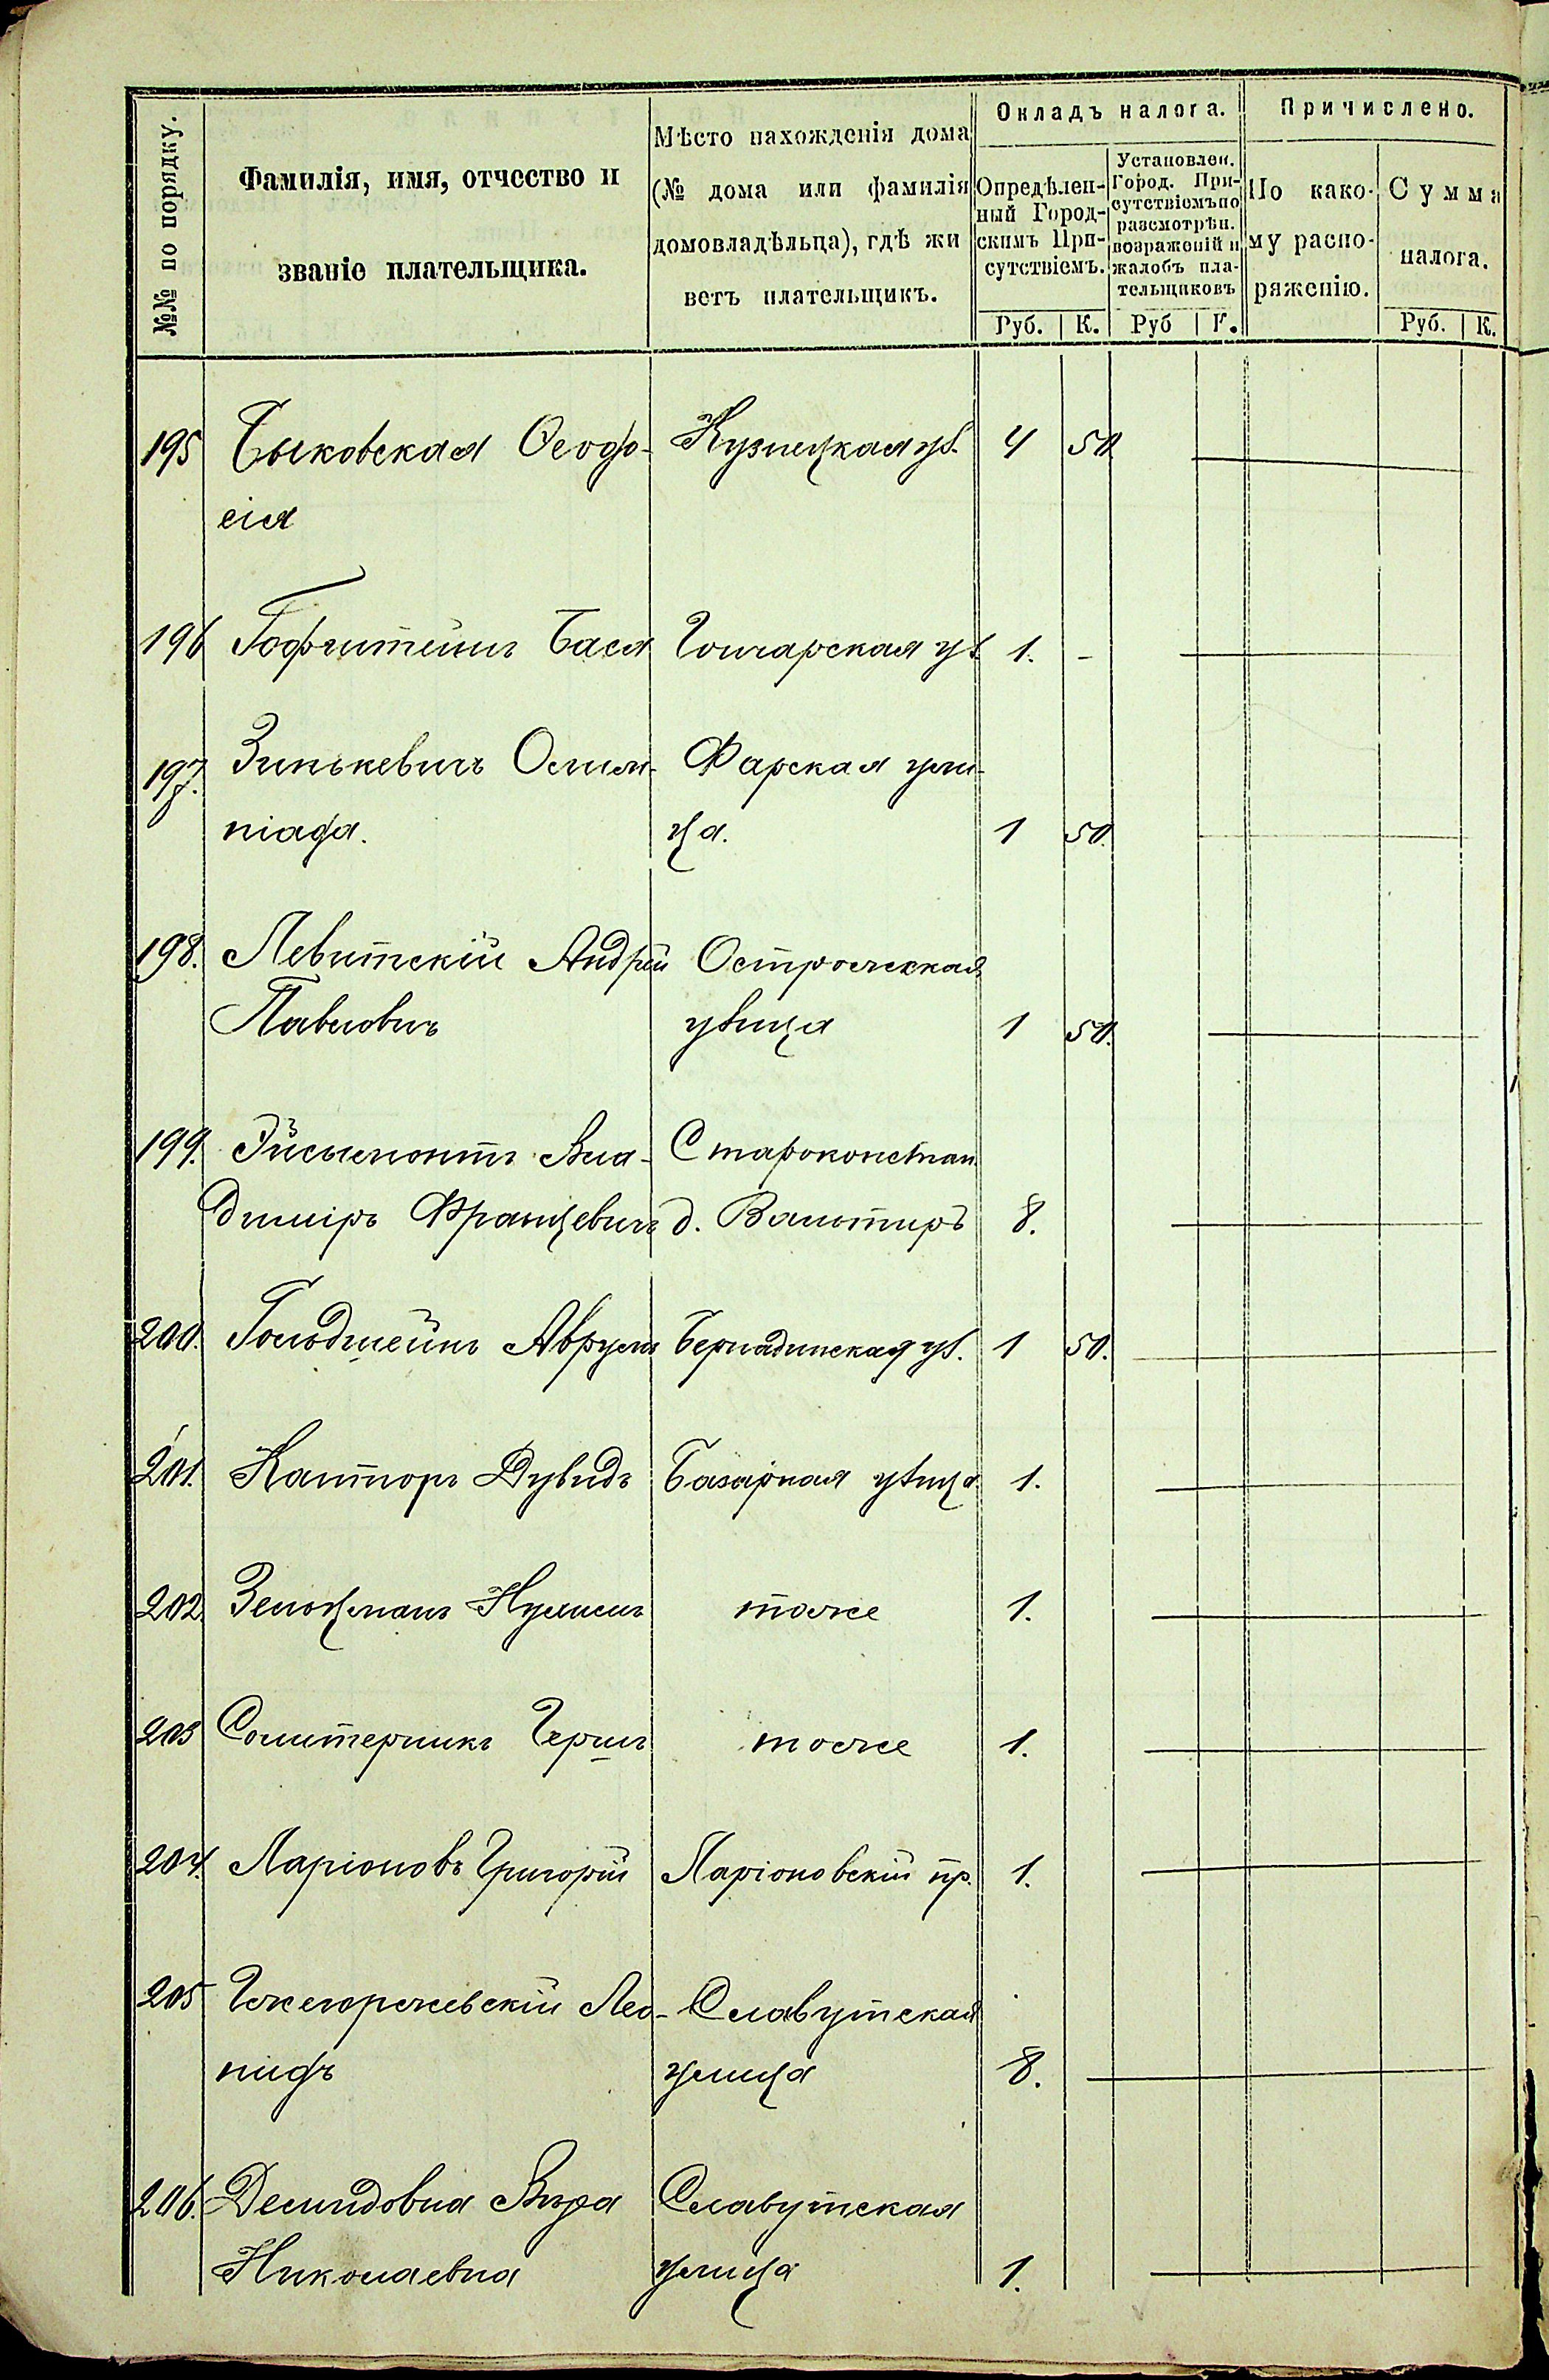 №№ по порядку.
Фамилія, имя, отчество и
званіе плательщика.
Мѣсто нахожденія дома
(№ дома или фамилія
домовладѣльца), гдѣ жи
ветъ плательщикъ.
Окладъ налога.
Опредѣлен-
ный Город-
скимъ При-
сутствіемъ.
Установлен.
Город. При-
сутствіемъ по
разсмотрѣн.
возраженій и
жалобъ пла-
тельщиковъ
Причислено.
По како-
му распо-
ряженію.
Сумма
налога.
Руб. К. Руб К. Руб. К.
195 Быковская Ѳеодо- Кузнецкая ул. 4 50
сія
196 Гофштейнъ Бася Гончарская ул. 1. -
197. Зинькевичъ Олим- Фарская ули-
піада. ца. 1 50.
198. Левитскій Андрей Острожская
Павловичъ улица 1 50.
199. Эйсымонтъ Вла- Староконстан.
диміръ Францевичъ д. Вальтиръ 8.
200. Гольдшейнъ Аврумъ Бернадинская ул. 1 50.
201. Канторъ Дувидъ Базарная улица 1.
202. Зельцманъ Нухимъ тоже 1.
203 Солитерникъ Гершъ тоже 1.
204. Ларіоновъ Григорій Ларіоновскій пр. 1.
205 Гжегоржевскій Лео- Славутская
нидъ улица 8.
206. Демидовна Вѣра Славутская
Николаевна улица 1.